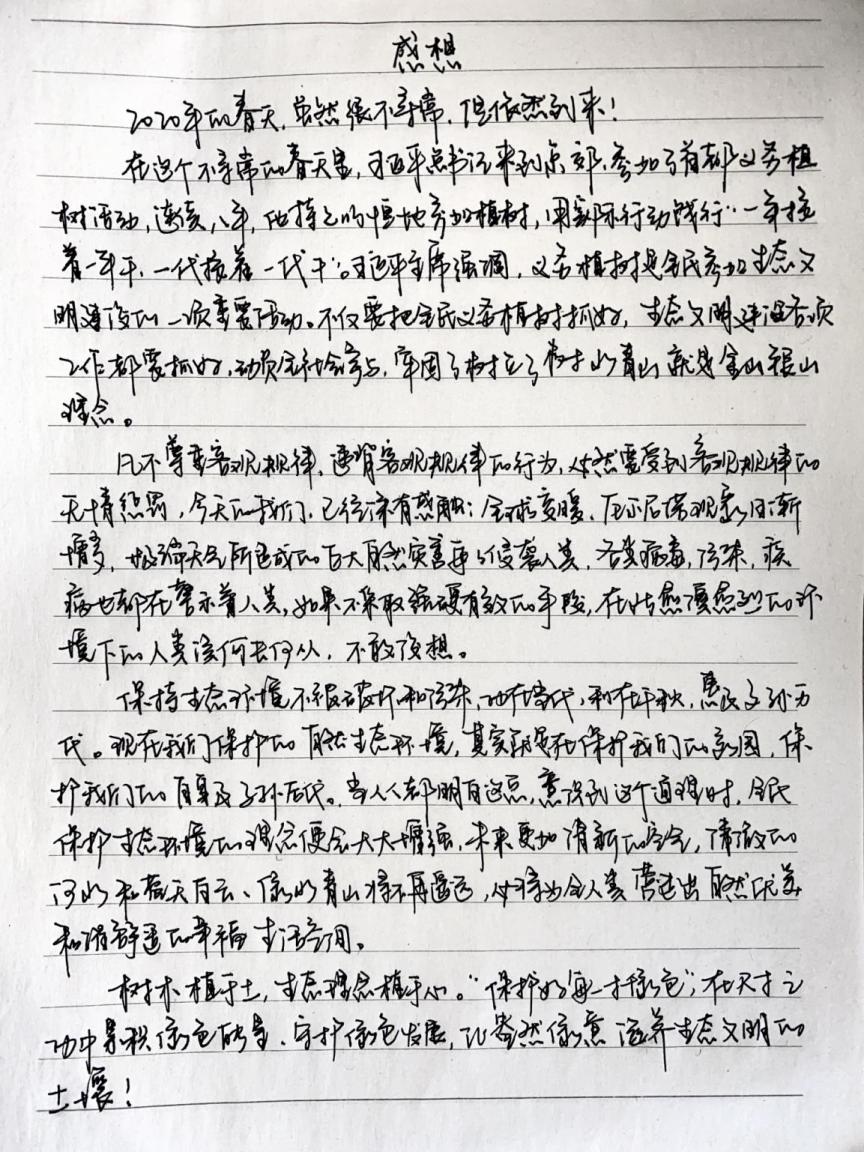 感想
2020年的春天，虽然很不寻常，但依然到来！
在这个不寻常的春天里，习近平总书记来到京郊，参加了首都义务植
树活动，连续八年，他持之以恒地参加植树，用实际行动践行“一年接
着一年干，一代接着一代干”。习近平主席强调，义务植树是全民参加生态文
明建设的一项重要活动。不仅要把全民义务植树抓好，生态文明建设各项
工作都要抓好，动员全社会参与，牢固了树立了绿水青山就是金山银山
理念。
凡不尊重客观规律，违背客观规律的行为，必然需受到客观规律的
无情惩罚，今天的我们，已经深有感触：全球变暖、厄尔尼诺现象日渐
增多，极端天气所造成的巨大自然灾害再侵袭人类，各类病毒，污染，疾
病也都在警示着人类，如果不采取强硬有效的手段，在此愈演愈烈的环
境下的人类该何去何从，不敢设想。
保持生态环境不被破坏和污染，功在当代，利在千秋，惠及子孙万
代。现在我们保护的自然生态环境，其实就是在保护我们的家园，保
护我们的自身及子孙后代。当人人都明白这点，意识到这个道理时，全民
保护生态环境的理念便会大大增强，未来更加清新的空气，清澈的
河水和蓝天白云、绿水青山将不再遥远，必将为全人类营造出自然优美
和谐舒适的幸福生活空间。
树木植于土，生态理念植于心。“保护好每一寸绿色”，在尺寸之
功中累积绿色能量、守护绿色发展，让盎然绿意滋养生态文明的
土壤！